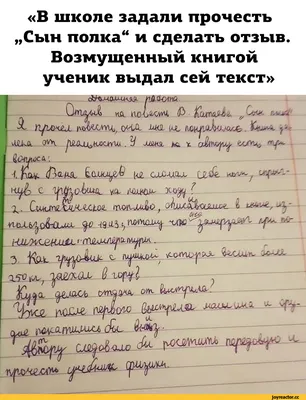 «В школе задали прочесть
„Сын полка“ и сделать отзыв.
Возмущенный книгой
ученик выдал сей текст»
Домашняя работа
Отзыв на повесть В. Катаева „Сын полка“
Я прочел повесть, она мне не понравилась. Книга да-
лека от реальности. У меня к автору есть три
вопроса:
1. Как Ваня Солнцев не сломал себе ноги, спрыг-
нув с грузовика на полном ходу?
2. Синтетическое топливо, описываемое в книге, ис-
пользовали до 1943, потому что оно замерзает при по-
нижении температуры.
3. Как грузовик с пушкой, которая весит более
250 кг, заехал в гору?
Куда делась отдача от выстрела?
Уже после первого выстрела машина и ору-
дие покатились бы вниз.
Автору следовало бы посетить передовую и
прочесть учебник физики.
joyreactor.cc